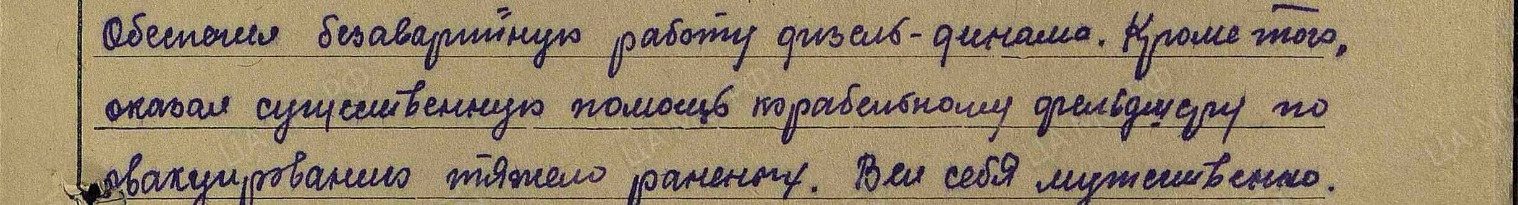 Обеспечил безаварийную работу дизель-динамо. Кроме того,
оказал существенную помощь корабельному фельдшеру по
эвакуированию тяжело раненых. Вел себя мужественно.